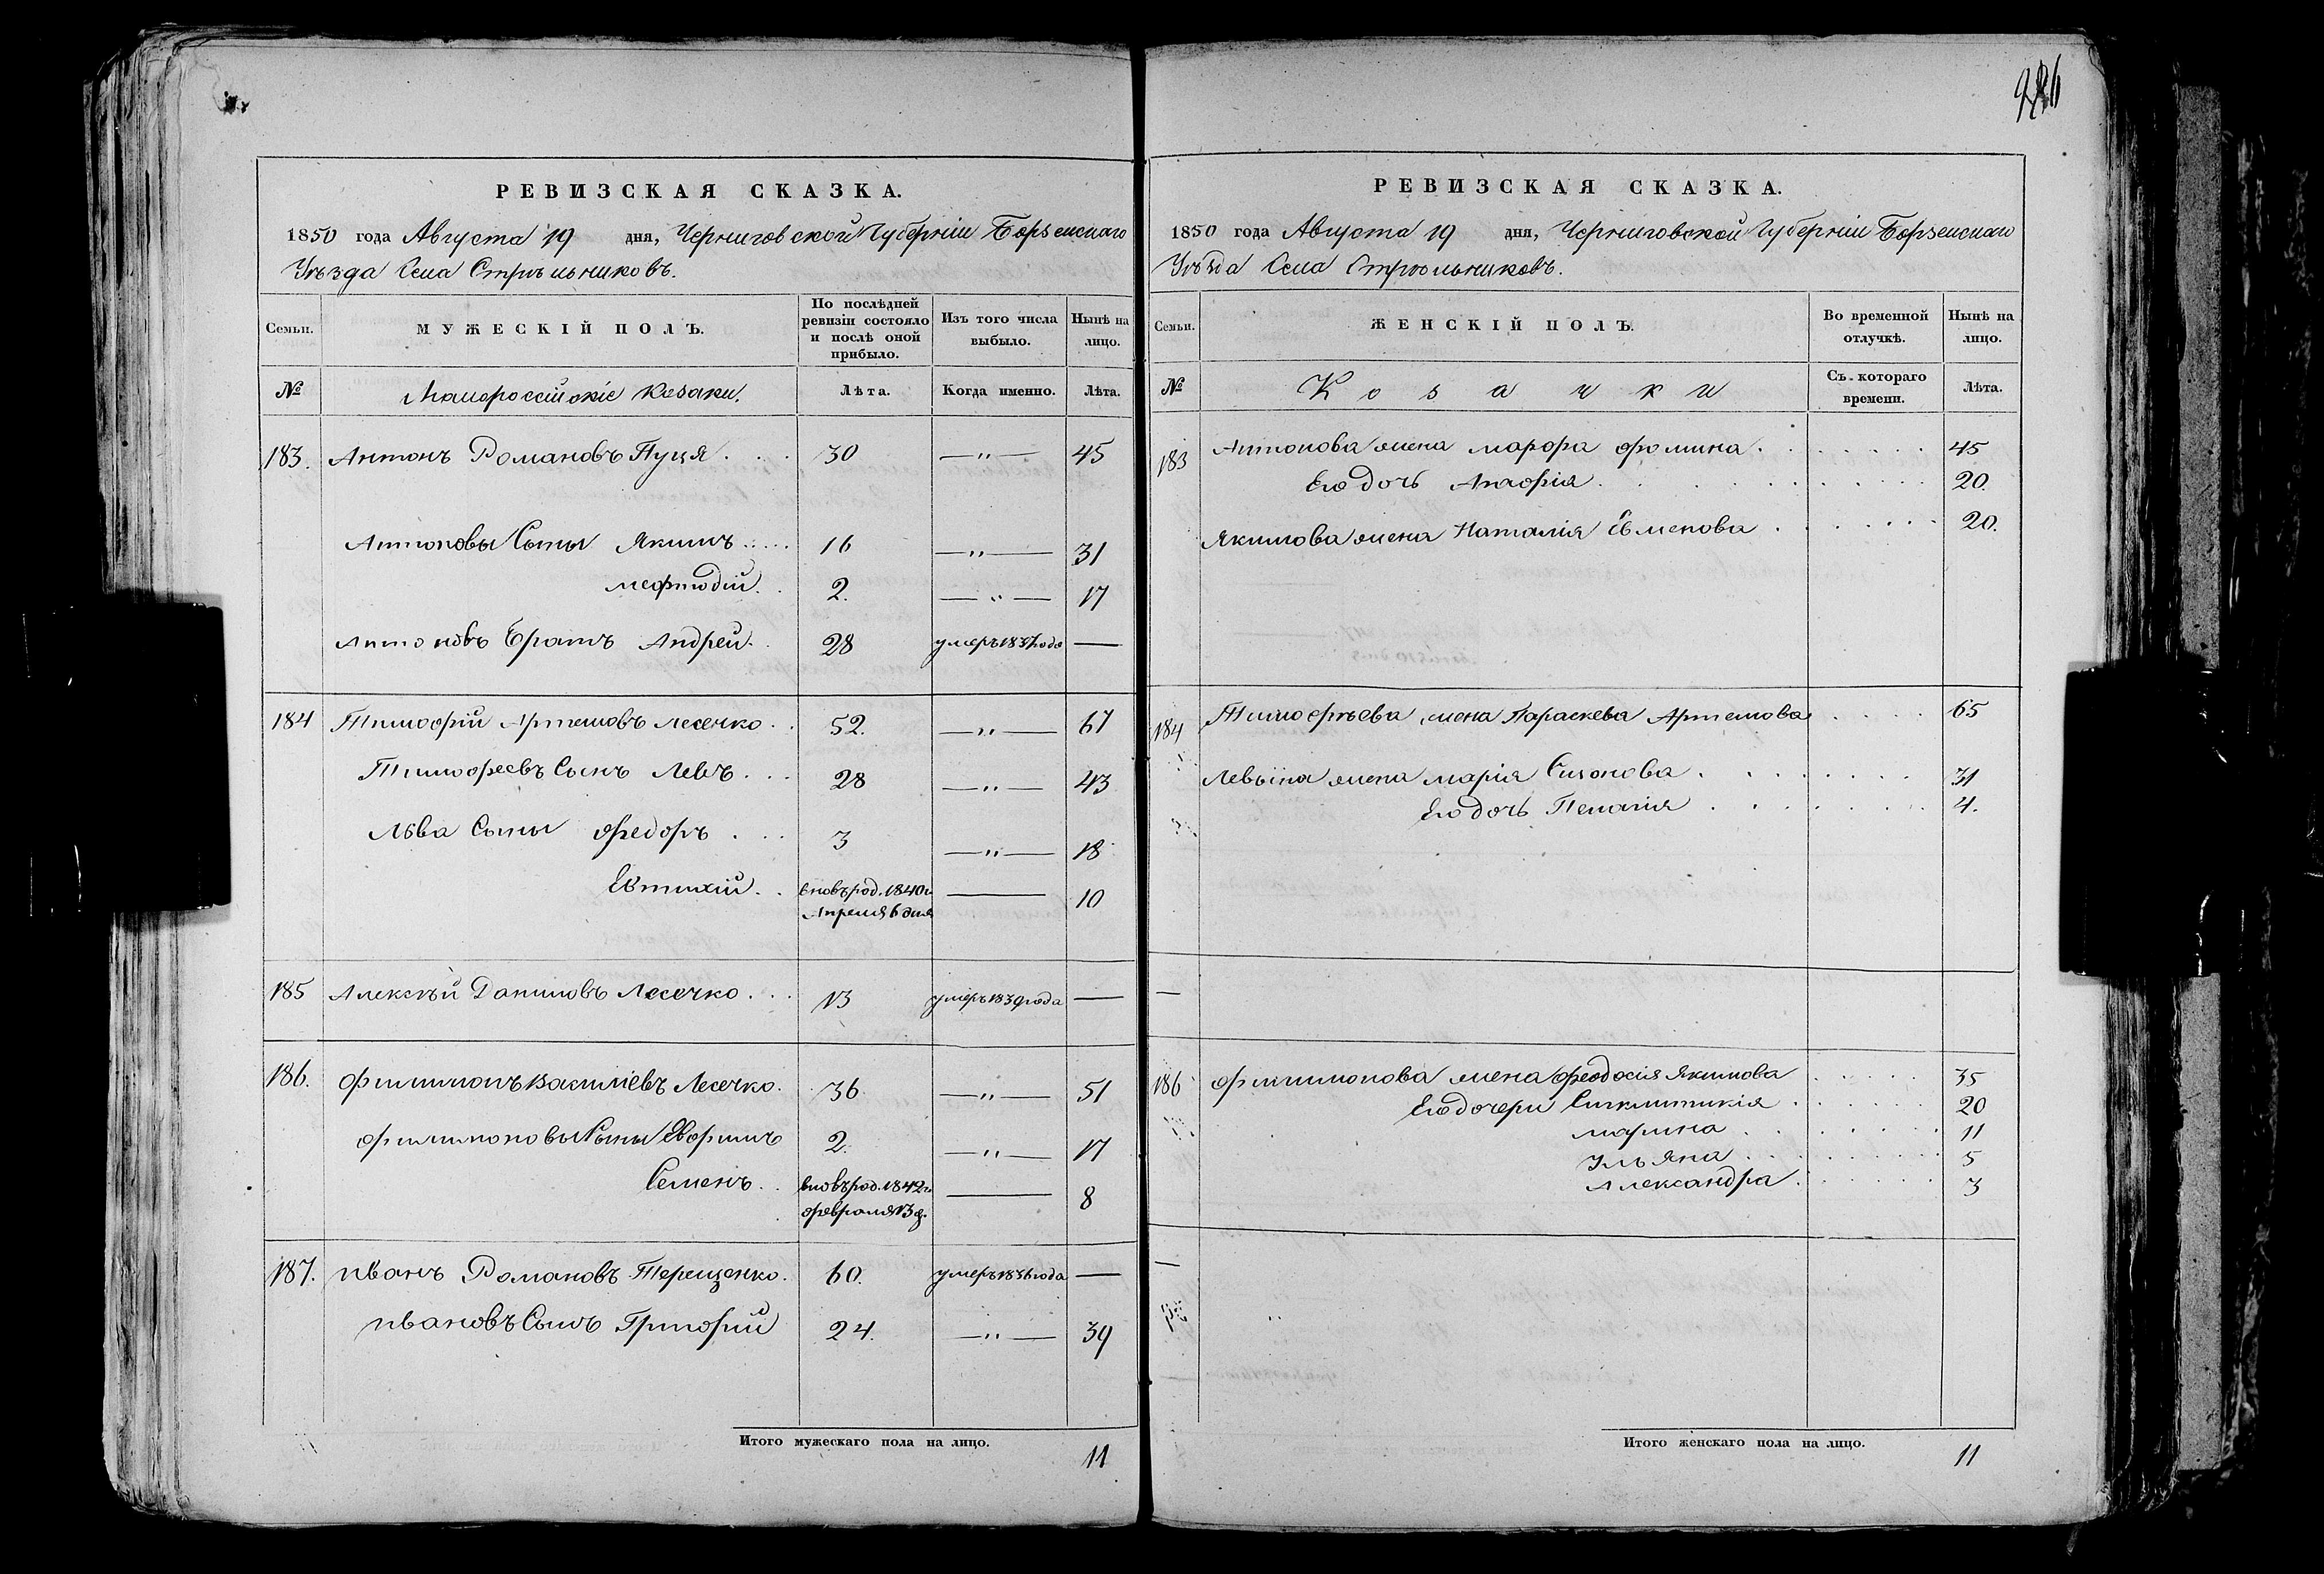 РЕВИЗСКАЯ СКАЗКА.
1850 года Августа 19 дня, Черниговской Губерніи Борзенскаго
Уѣзда Села Стрѣльниковъ.
Семьи. МУЖЕСКІЙ ПОЛЪ. По послѣдней ревизіи состояло и послѣ оной прибыло. Изъ того числа выбыло. Нынѣ на лицо.
№ Малороссійскіе Козаки. Лѣта. Когда именно. Лѣта.
183. Антонъ Романовъ Пуця . . . 30 —„— 45
Антоновы Сыны Якимъ . . . . 16 —„— 31
Мефтодій . . 2. —„— 17
Антоновъ Братъ Андрей . . 28 умеръ 1837 года —
184 Тимофій Артемовъ Лесечко . . 52. —„— 67
Тимофеевъ Сынъ Левъ . . . 28 —„— 43
Лѣва Сыны Федоръ . . . 3 —„— 18
Евтихій . . вновь род. 1840 г. — 10
Апреля 6 дня
185 Алексѣй Даниловъ Лесечко . . . 13 умеръ 1839 года —
186. Филимонъ Василіевъ Лесечко . 36 —„— 51
Филимоновы Сыны Евфимъ 2. —„— 17
Семенъ . . вновь род. 1842 г. — 8
Февраля 13 д.
187. Иванъ Романовъ Терещенко . 60. умеръ 1836 года —
Ивановъ Сынъ Григорій 24. —„— 39
Итого мужескаго пола на лицо. 11
РЕВИЗСКАЯ СКАЗКА.
1850 года Августа 19 дня, Черниговской Губерніи Борзенскаго
Уѣзда Села Стрѣльниковъ.
Семьи. ЖЕНСКІЙ ПОЛЪ. Во временной отлучкѣ. Нынѣ на лицо.
№ Козачки Съ котораго времени. Лѣта.
183 Антонова жена Марфа Фомина . . . . . . . 45
Его дочь . . . . . . . . 20.
Якимова жена Наталія Евменова . . . . . . 20.
184 Тимофѣева жена Параскева Артемова . . . . 65
Левьіна жена Марія . . . . . . . 31
Его дочь Пелагія . . . . . . . 4.
—
186 Филимонова жена Феодосія Якимова . . . . . 35
Его дочери Синклитикія . . . . . . 20
Марина . . . . . . . 11
Ульяна . . . . . . . . 5
Александра . . . . . . 3
—
Итого женскаго пола на лицо. 11